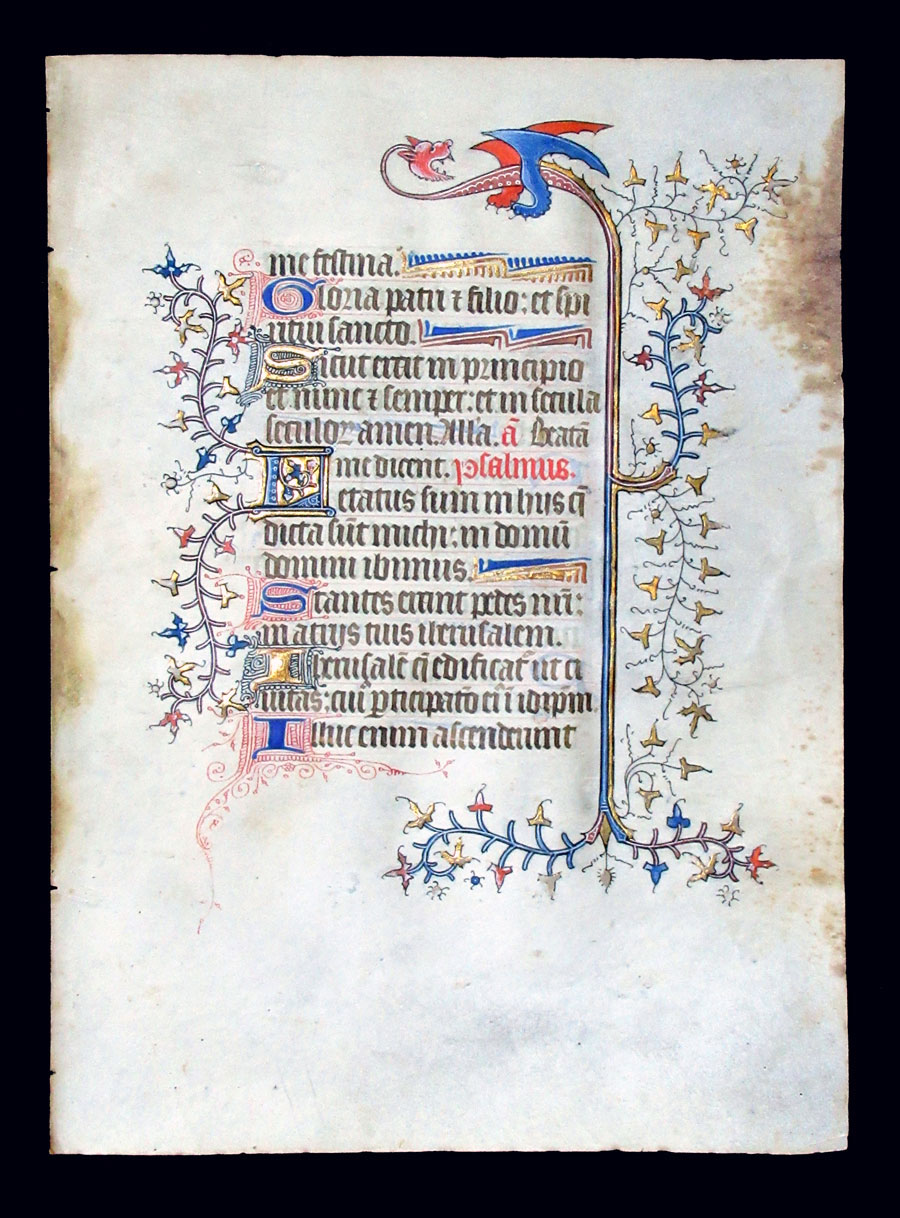 me festina.
Gloria patri ⁊ filio: et spi
ritui sancto.
Sicut erat in principio
et nunc ⁊ semper: et in secula
seculoꝝ amen. Alla. a̅ Beata̅
me dicent. psalmus.
Letatus sum in hijs q̅
dicta su̅t michi: in domu̅
domini ibimus.
Stantes erant pedes nr̅i:
in atrijs tuis iherusalem.
Iherusale̅ q̅ edificat᷑ ut ci
uitas: cui᷒ ꝑticipat̅o ei᷒ i̅ idip̅m
Illuc enim ascenderunt